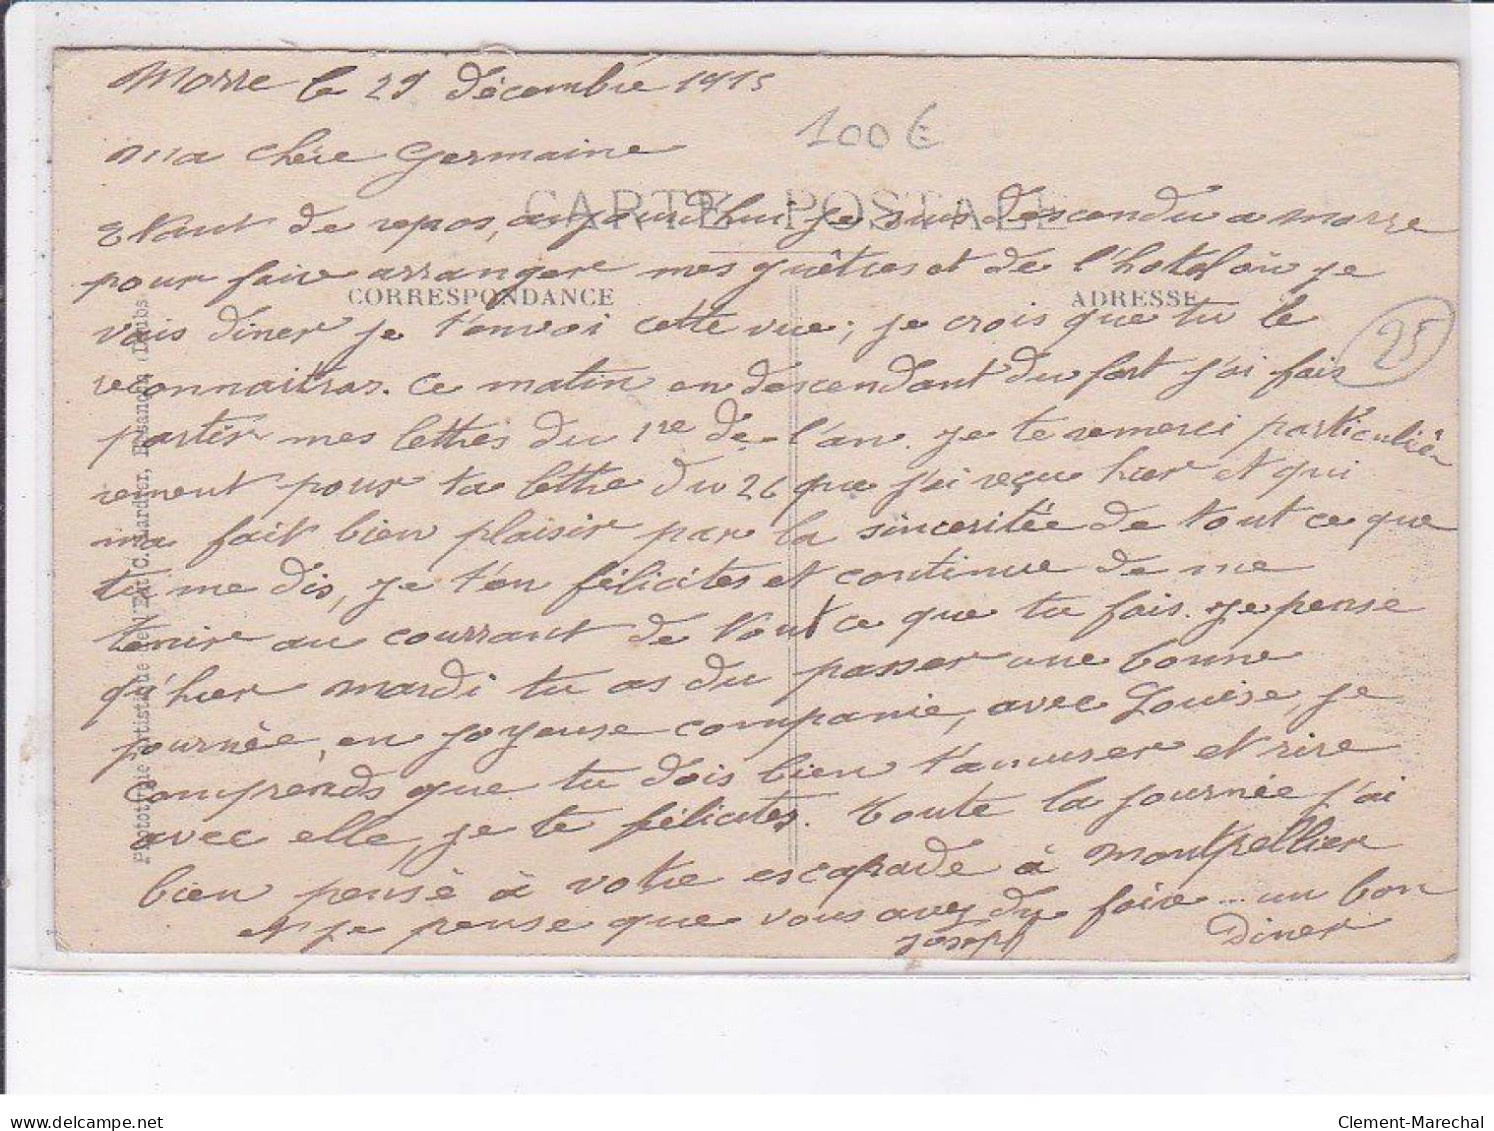 Morre le 29 décembre 1915
100€
Ma chère Germaine
CARTE POSTALE
Etant de repos, aujourd'hui je suis descendu a Morre
pour faire arranger mes guêtres et de l'hotel où je
CORRESPONDANCE
ADRESSE
vais diner je t'envoi cette vue; je crois que tu le
25
reconnaitras. Ce matin en descendant du fort j'ai fais
partir mes lettres du 1re de l'an. Je te remerci particuliè
rement pour ta lettre du 26 que j'ai reçue hier et qui
ma fait bien plaisir par la sincéritée de tout ce que
tu me dis, je t'en félicites et continue de me
tenir au courrant de tout ce que tu fais. Je pense
qu'hier mardi tu as du passer une bonne
journée, en joyeuse companie, avec Louise, je
comprends que tu dois bien t'amuser et rire
avec elle, je te félicites. Toute la journée j'ai
bien pensé à votre escapade à Montpellier
et je pense que vous avez du faire... un bon
Diner
Joseph
Phototypie Artistique de l'Est C. Lardier, Besançon (Doubs)
delcampe.net
Clement-Marechal